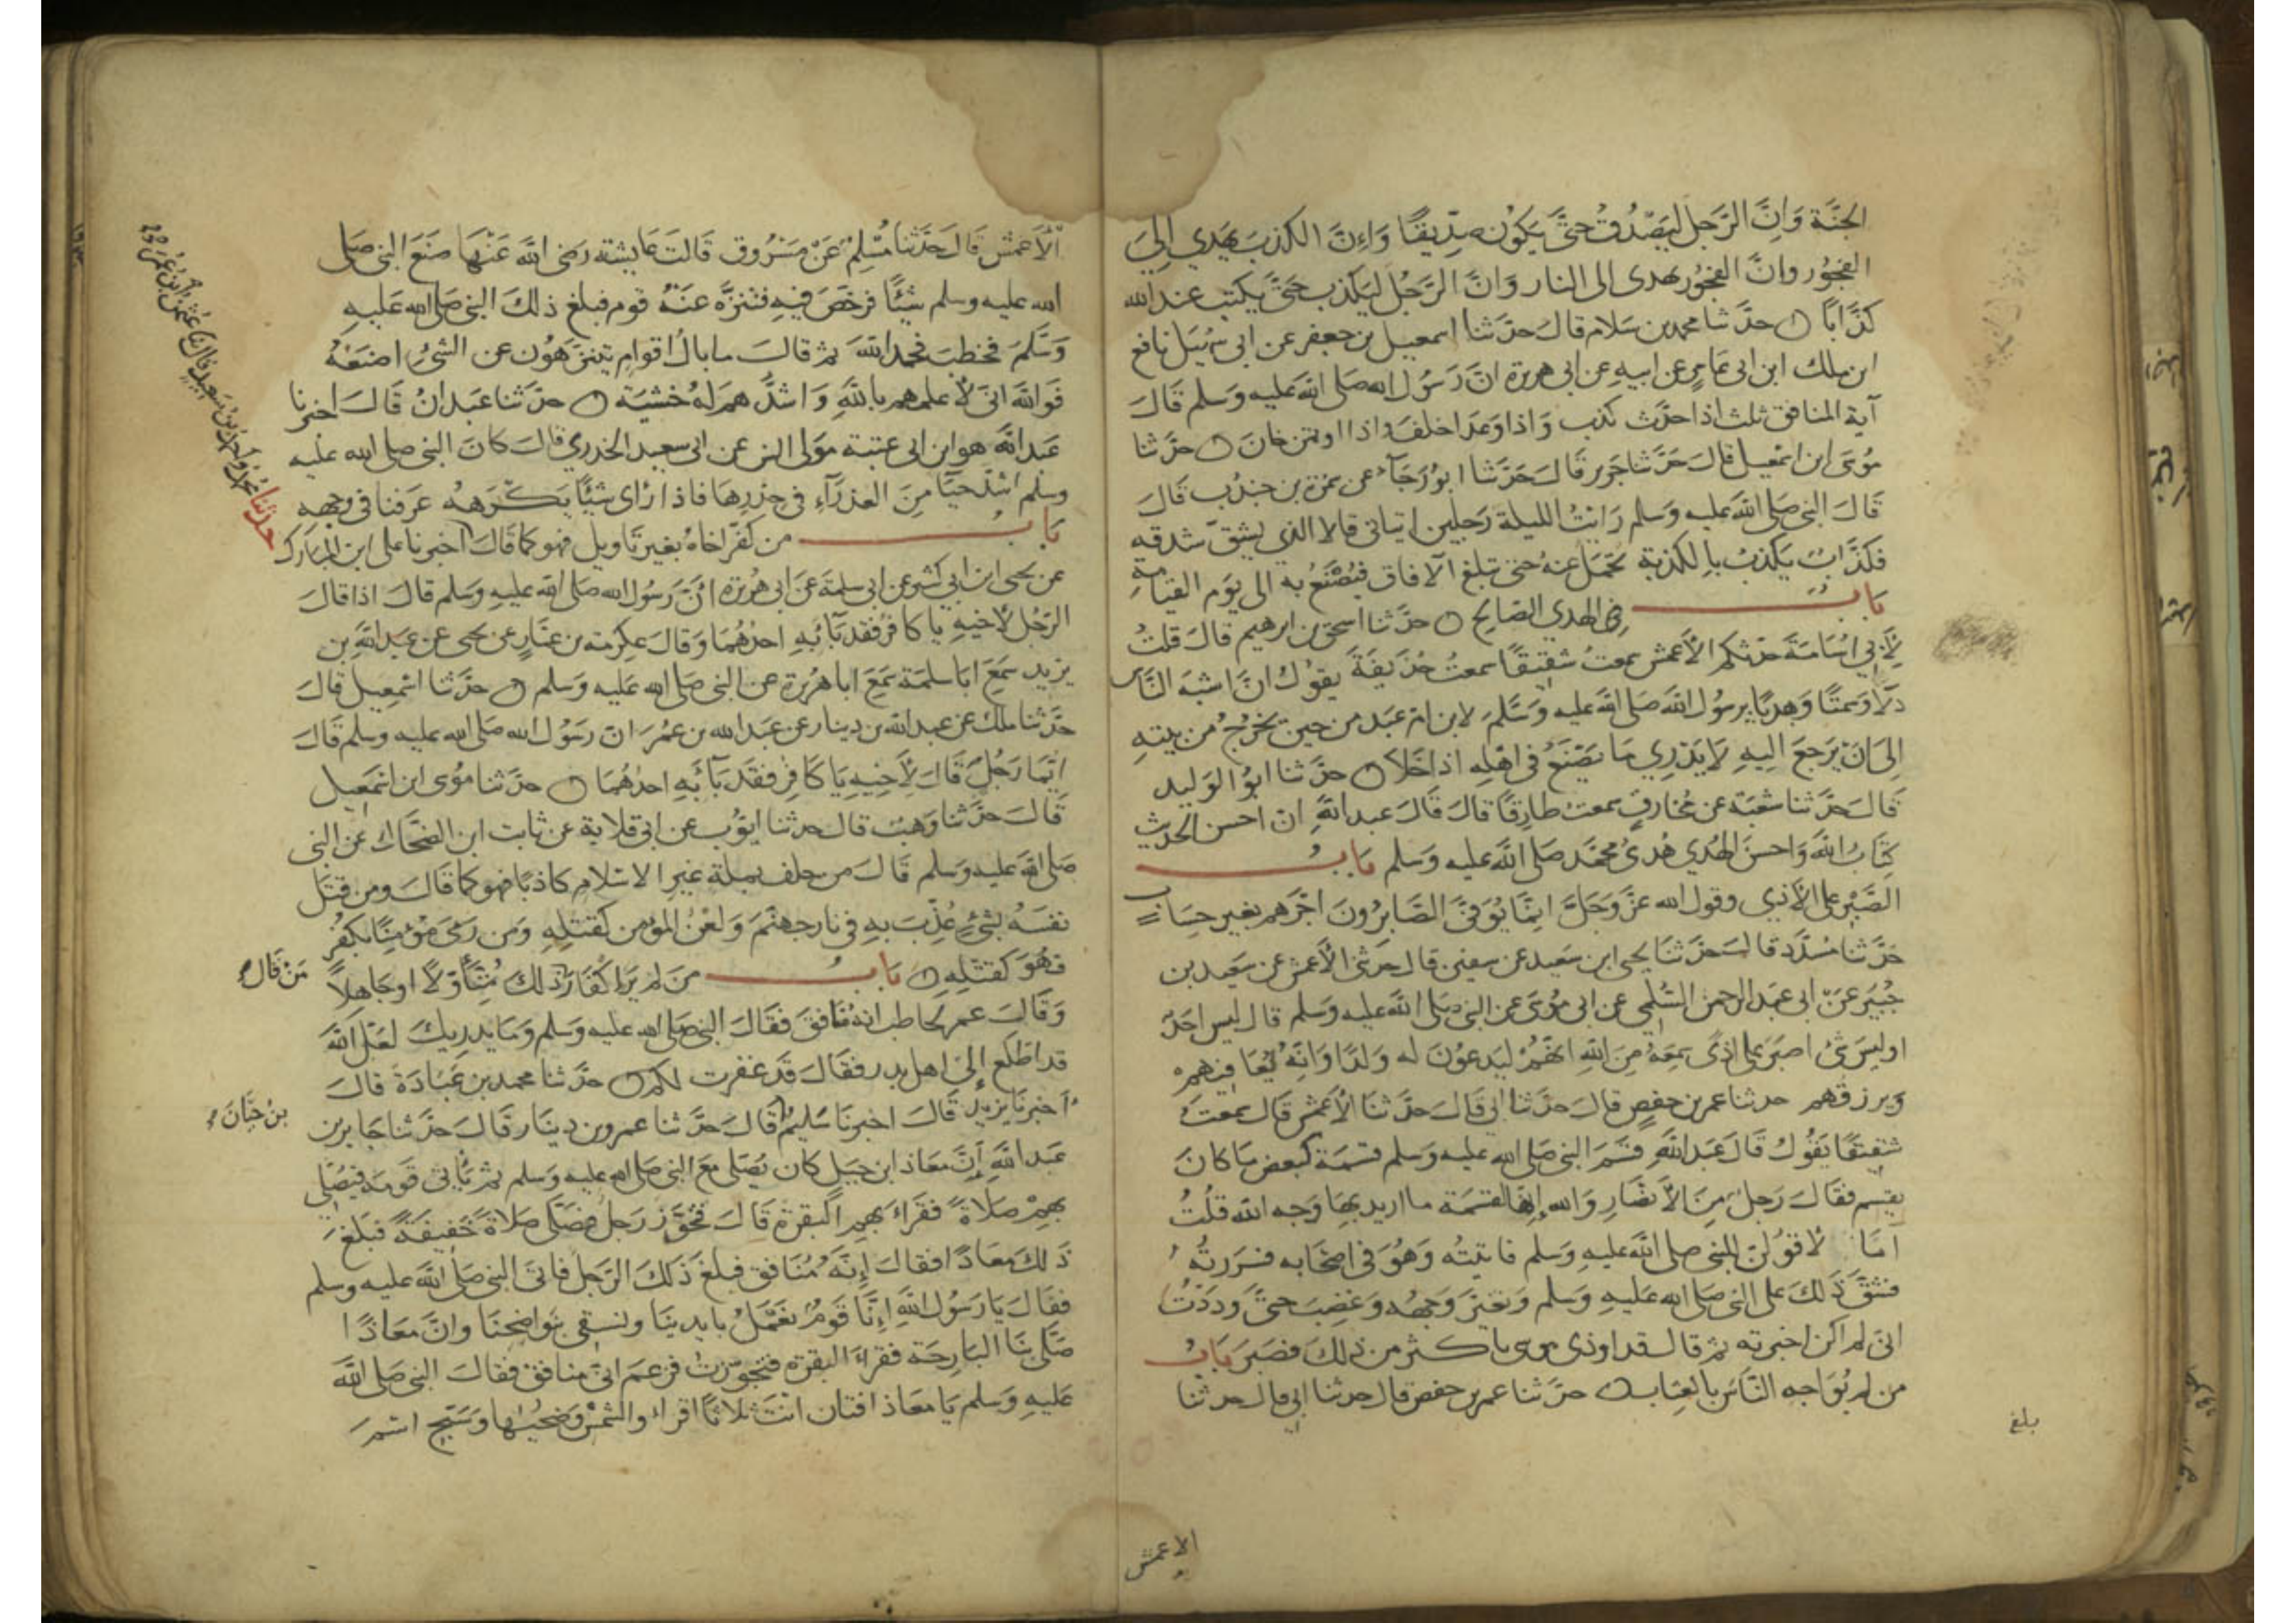 الجنَّة وَانَّ الرَّجل ليَصْدُقُ حتَّى يكوُن صدِّيقًا وَاِنَّ الكذب يهدي اِلىَ
الفجوُر وانَّ الفجوُر يهدى الى النار وَانَّ الرَّجُل ليَكذب حتَّى يكتب عند الله
كذَّابًا ۝ حدَّثنا محمد بن سَلام قال حدَّثنا اسمعيل بن جعفر عن ابى سُهَيل نافع
ابن ملك ابن ابى عَامرٍ عن ابيهِ عن ابى هريرة انَّ رَسُول الله صَلى الله عليه وَسَلم قالَ
آية المنافق ثلث اذا حدَّث كذب وَاذا وعَد اخلفَ وَاذا اوتمن خانَ ۝ حدَّثنا
مُوسَى ابن اسمعيل قال حَدَّثنا جَرير قَالَ حَدَّثنا ابوُ رَجَآءٍ عن سمرة بن جندُب قال
قَال النبي صَلى الله عليه وَسَلم رَايتُ الليلة رَجلين اتيانى قالا الذي يُشقّ شدقه
فكذَّابٌ يَكذبُ بالكذبة تُحْمَل عنهُ حتى تبلغ الآفاق فيُصْنَعُ به الى يَوم القيامة
بَابُ فى الهدي الصَّالح ۝ حدَّثنا اسحق بن ابرهيم قال قلتُ
لِأَبي اُسَامَةَ حدّثكم الأعمش سمعتُ شقيقًا سمعتُ حُذَيفَةَ يقوُل انَّ اشبَهَ النَّاس
دَلًّا وَسَمتًا وَهديًا برسُول الله صَلى الله عليه وَسَلَّمَ لابن امّ عَبد من حين يخرُجُ من بيتهِ
اِلى انْ يَرجعَ اليهِ لا يَدْرِي مَا يَصْنَعُ فى اهْلِهِ اذا خَلا ۝ حدَّثنا ابوُ الوَليد
قَال حدَّثنا شعْبَة عن مُخارقٍ سمعتُ طارِقًا قالَ قَالَ عبد اللهِ انَّ احسن الحديث
كِتَابُ الله وَاحسنَ الهَدي هَدىُ محمَّد صَلى الله عليه وَسَلم بَابُ
الصَّبْرِ على الأذى وقول الله عزَّ وَجَلَّ اِنَّمَا يُوَفَّى الصَّابِرُونَ اجْرَهم بغير حِسَابٍ
حدَّثنا مُسَدَّد قالَ حَدَّثنا يَحيى ابن سَعيد عن سفين قال حدثنى الأعمش عن سَعِيد بن
جُبَير عَنْ ابى عَبد الرحمن السُّلمي عن ابى مُوسَى عن النبى صَلى الله عليه وَسَلم قال ليس احَدٌ
او ليسَ شئ اصبَرَ على اذًى سَمِعَهُ مِنَ اللهِ اِنَّهُمْ ليَدعوُنَ له وَلدًا وَانَّهُ ليُعَافيهمْ
وَيرزقهم حدثنا عمر بن حفصٍ قالَ حدَّثنا ابى قَالَ حدَّثنَا الأعمَش قال سمعتُ
شقيقًا يَقُوُل قَالَ عَبد اللهِ قسَمَ النبى صَلى الله عليه وَسلم قسمَة كبعض مَا كانَ
يقسِم فقالَ رَجلٌ مِنَ الأنصَارِ وَالله اِنَّها لقسْمَة ما اريد بهَا وَجه الله قلتُ
اَمَا لاَقوُلنَّ للنبى صلى الله عليهِ وَسَلم فاتيتُه وَهُوَ فى اصْحَابه فسَرَرتُهُ
فشقَّ ذلكَ على النبى صَلى الله عَليهِ وَسَلم وَتغيَّرَ وَجهُه وَغضِبَ حتىَّ وَدَدْتُ
انى لم اكن اخبرته ثم قال قد اوذى موسى باكثر من ذلكَ فصَبَرَ بَابُ
من لم يُوَاجه النَّاسَ بالعِتَاب حدَّثنا عمر بن حفص قال حدثنا ابى قال حدثنا
بلغ
الاعمش
الأعمش قَالَ حَدَّثنا مُسْلِمٌ عَنْ مَسْرُوق قَالتْ عَايشة رَضى الله عَنْهَا صَنَعَ النبى صَلى
الله عليه وسلم شيْئًا فرخَّصَ فيهِ فتنزَّه عنَهُ قوم فبلغ ذلكَ النبىَ صَلى الله عَليهِ
وَسَلَّمَ فخطبَ فحمد اللهَ ثم قالَ ما بالُ اقوامٍ يتنزَّهوُن عن الشئِ اصْنَعُهُ
فَوَالله انى لأعلمهم باللهِ وَاشدُّهم لهُ خشيَة ۝ حدَّثنا عَبدانُ قَالَ اخبرنا
عَبد الله هو ابن ابى عتبة مَوْلى انس عن ابى سعيد الخدري قالَ كانَ النبى صلى الله عليه
وسلم اشدَّ حيَآءً مِنَ العذرَآءِ فى خِدْرِهَا فاذا رَاى شيئًا يَكرَههُ عَرفنا فى وجهه
بَابُ من كفَّر اخاهُ بغير تَاويل فهو كما قَالَ اخبرنا على ابن المبارك
عن يحيى ابن ابى كثير عن ابى سلمَة عَن ابى هُريَرة انَّ رَسُول الله صَلى الله عليهِ وَسَلم قالَ اذا قالَ
الرَّجُل لأخيهِ يا كافر فقد بَآء بهِ احدُهُمَا وَقالَ عِكرمة بن عمَّارٍ عن يحيى عن عَبد اللهِ بن
يزيد سَمِعَ ابَا سلمَة سَمِعَ ابا هُرَيرة عن النبى صَلى الله عَليه وَسَلم ۝ حدَّثنا اسْمعِيل قالَ
حدَّثنا ملك عن عبد الله بن دِينار عن عَبد الله بن عُمَرَ انّ رَسُول الله صَلى الله عليه وسلم قَالَ
ايّمَا رَجُلٌ قَالَ لِأخِيهِ يَا كَافِر فقَد بَآءَ بهِ احدُهُمَا ۝ حدَّثنا مُوسى ابن اسْمَعِيل
قَالَ حدَّثنا وَهيب قال حدثنا ايّوُب عن ابى قلابة عن ثابت ابن الضحَّاك عن النبى
صَلى الله عليه وَسَلم قَالَ من حلف بملة غير الاسْلام كاذبًا فهو كما قَالَ ومن قتَل
نفسَهُ بشئٍ عُذِّبَ بهِ فى نار جهنَّمَ وَلعْنُ المؤمن كقتلِهِ وَمَن رَمَى مُؤمنًا بكفْرٍ
فهُوَ كقتلِهِ ۝ بَابُ مَن لم يَرَ اِكفَارَ ذلكَ مُتَأوّلًا او جَاهِلاً
مَن قَالَ
وَقَالَ عمر لحاطب انه نَافق فقَالَ النبى صَلى الله عليه وَسَلم وَمَا يدريكَ لعَلَّ اللهَ
قد اطَّلَع إلى اهل بدر فقالَ قدْ غفرت لكم ۝ حدَّثنا محمد بن عَبَادَةَ قالَ
اَخبرنَا يزيد قَالَ اخبرنا سَليم قَالَ حدَّثنا عمرو بن دِينَار قَالَ حدَّثنا جَابر بن
بنُ حَيَّانَ
عَبد اللهِ اِنَّ مَعَاذ ابن جبل كان يُصَلى مَعَ النبى صَلى الله عليه وَسَلم ثم يَأتى قَومَه فيُصَلى
بهِمْ صَلاةً فقَرأ بهم البقرة قَالَ فتجَوَّزَ رَجل فصَلَّى صَلاةً خَفيفَةً فبَلغَ
ذَلكَ مَعَاذًا فقالَ اِنَّهُ مُنَافق فبلغ ذَلكَ الرَّجل فاتَى النبى صَلى الله عليه وسلم
فقَالَ يَا رَسُول الله اِنَّا قَومٌ نعَملُ بايدينَا ونسقِى بنَواضِحنَا وانَّ مَعَاذًا
صَلَّى بنَا البَارِحَة فقرأَ البقرة فتجوَّزتُ فزعمَ انىّ منافق فقالَ النبى صَلى الله
عَليهِ وَسَلم يَا مَعَاذ افتان انتَ ثلاثًا اقرأ والشمْس وضحيها وَسَبّح اسْمَ
حدثنا محمد واحمد بن سعيد قالا ثنا عثمن بن عُمَر